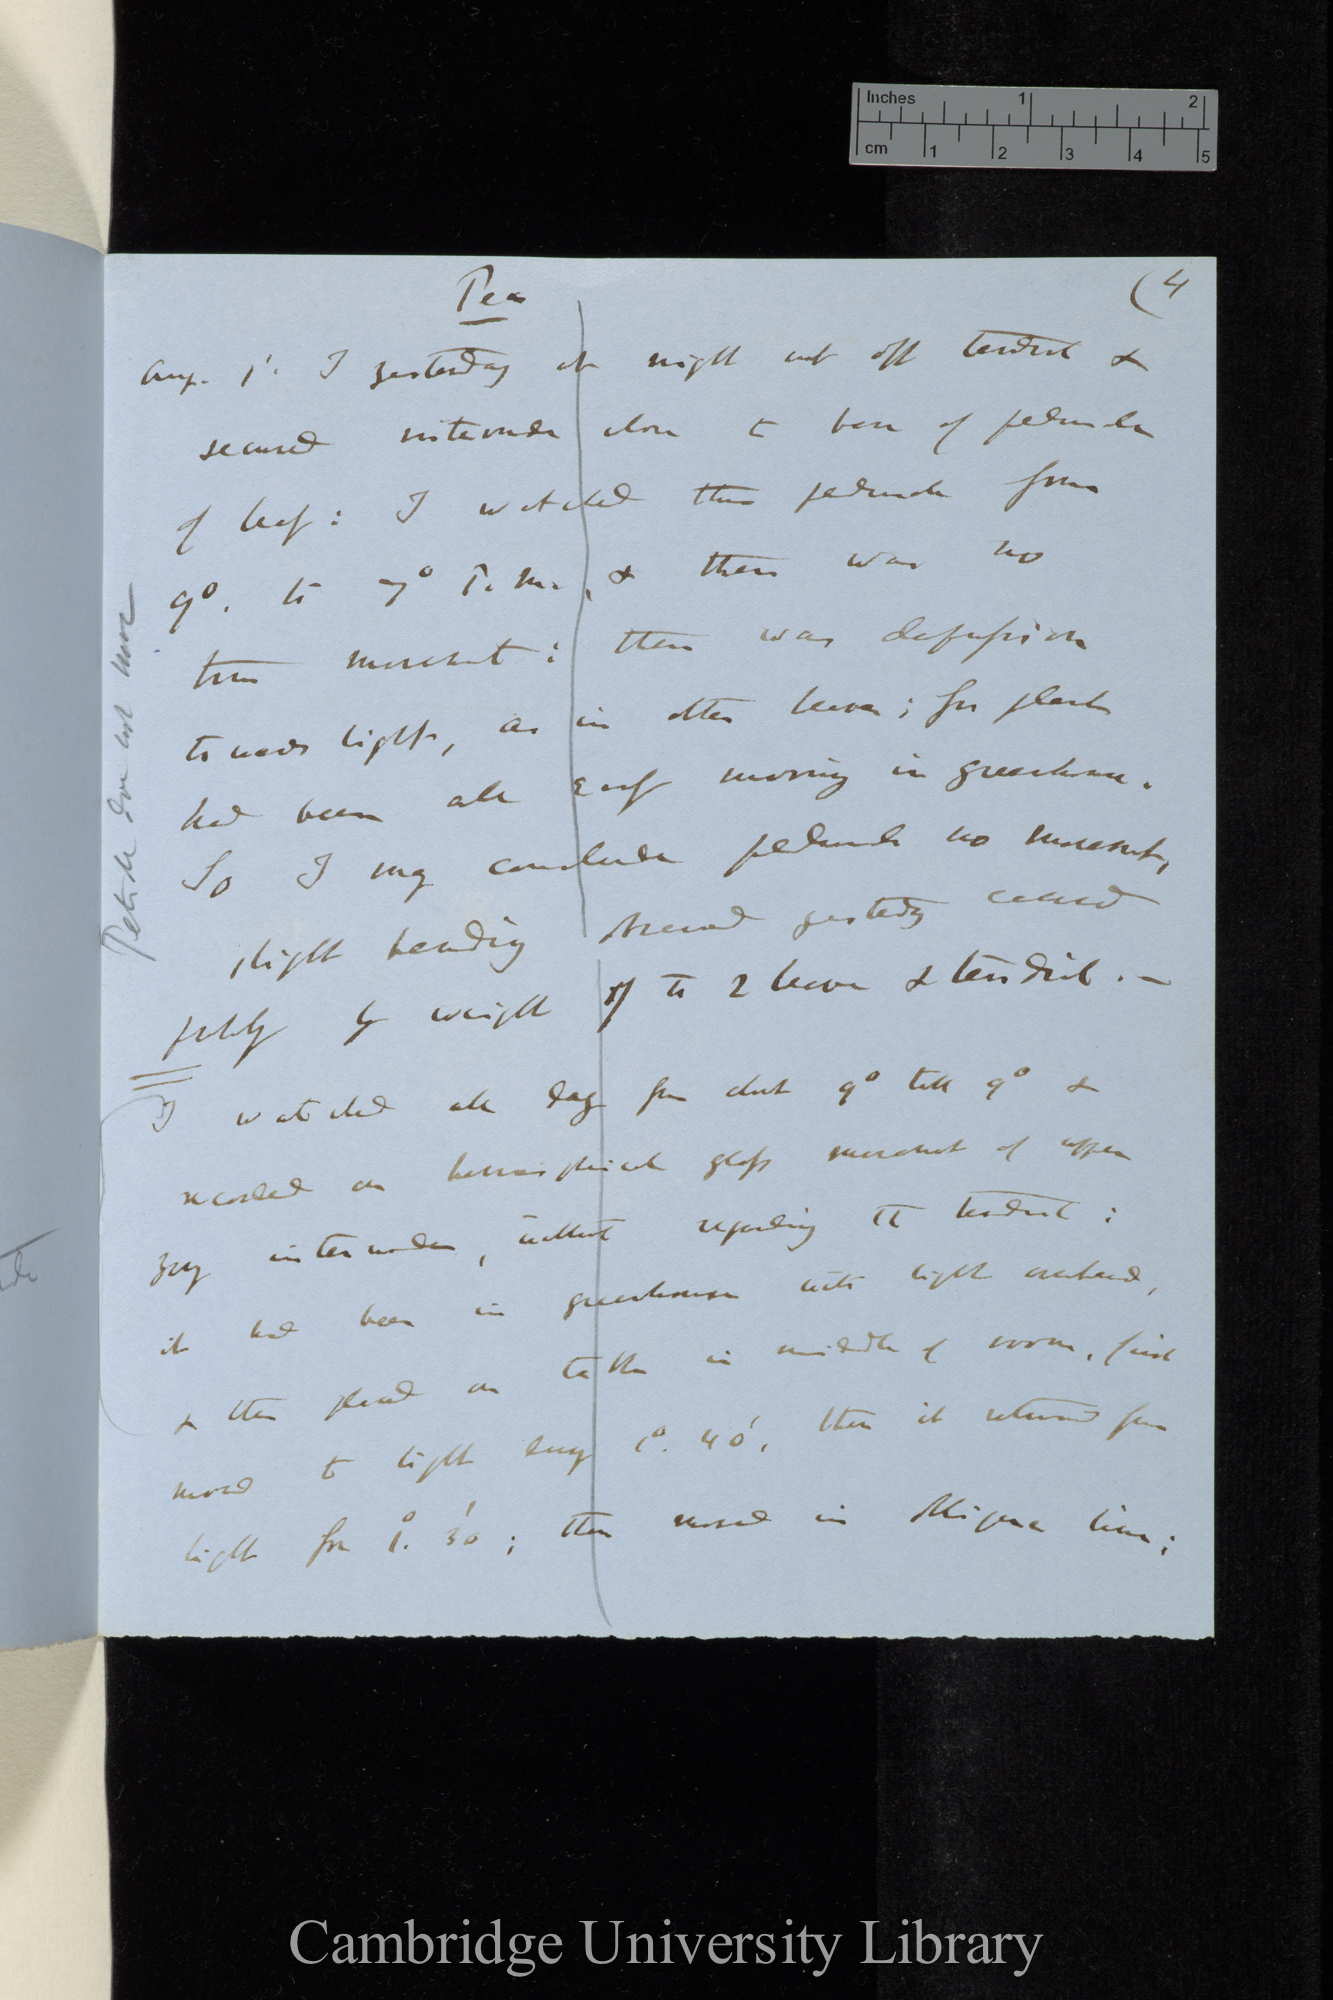 Inches 1 2
cm 1 2 3 4 5
Pea
(4
Aug. 1'. I yesterday at night cut off tendril &
secured internode close to base of peduncle
of leaf: I watched this peduncle from
9°. to 7° P.M., & there was no
true movement: there was
towards light, as in other leaves; for plant
had been all early morning in greenhouse.
So I may conclude peduncle no movement,
slight bending observed yesterday caused
probably by weight of its 2 leaves & tendril. —
I watched all day from about 9° till 9° &
recorded on hemispherical glass movement of upper
young internodes, without regarding the tendril:
it had been in greenhouse with light overhead,
& then placed on table in middle of room, first
moved to light during 1°. 40', then it returned from
light for 1°. 30'; then moved in oblique line;
Petiole does not move
Cambridge University Library